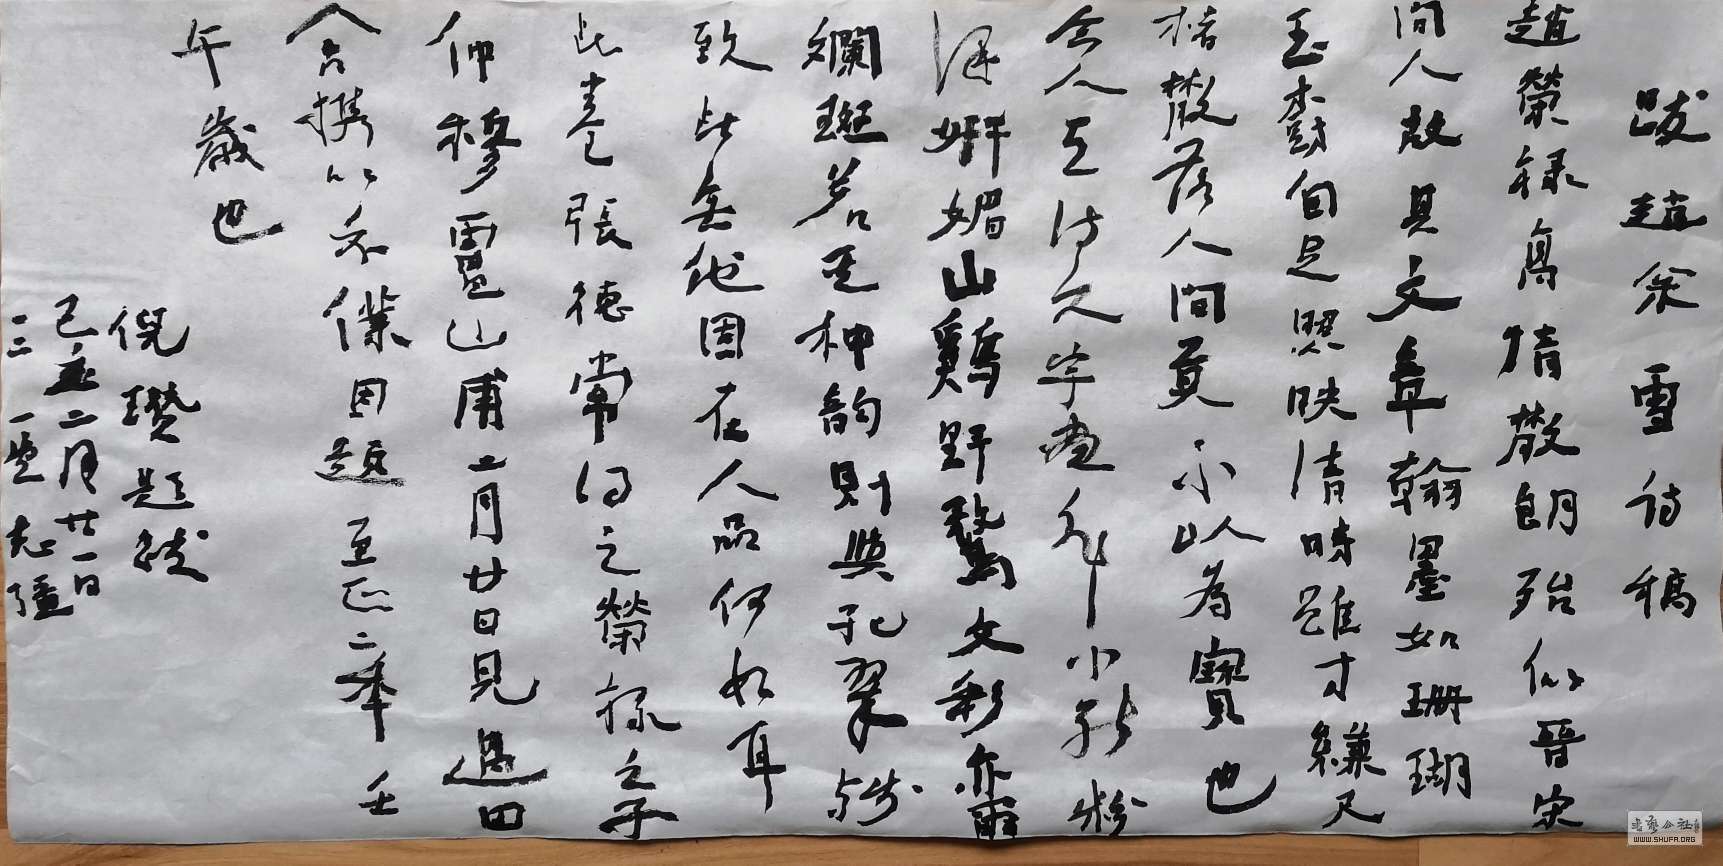 跋趙松雪詩稿
趙榮祿高情散朗殆似晉宋
間人故其文章翰墨如珊瑚
玉樹自足照映清時雖寸縑尺
楮散落人間莫不以為寶也
令人工詩文字畫非小能粉
澤妍媚山鷄野鶩文彩亦爾
斕斑若至神韻則與孔翠殊
致此無他固在人品何如耳
此卷張德常得之榮祿之子
仲穆靈山甫二月廿日見過田
舍攜以示僕因題至正二年壬
午歲也
倪瓚題跋
己亥二月廿一日